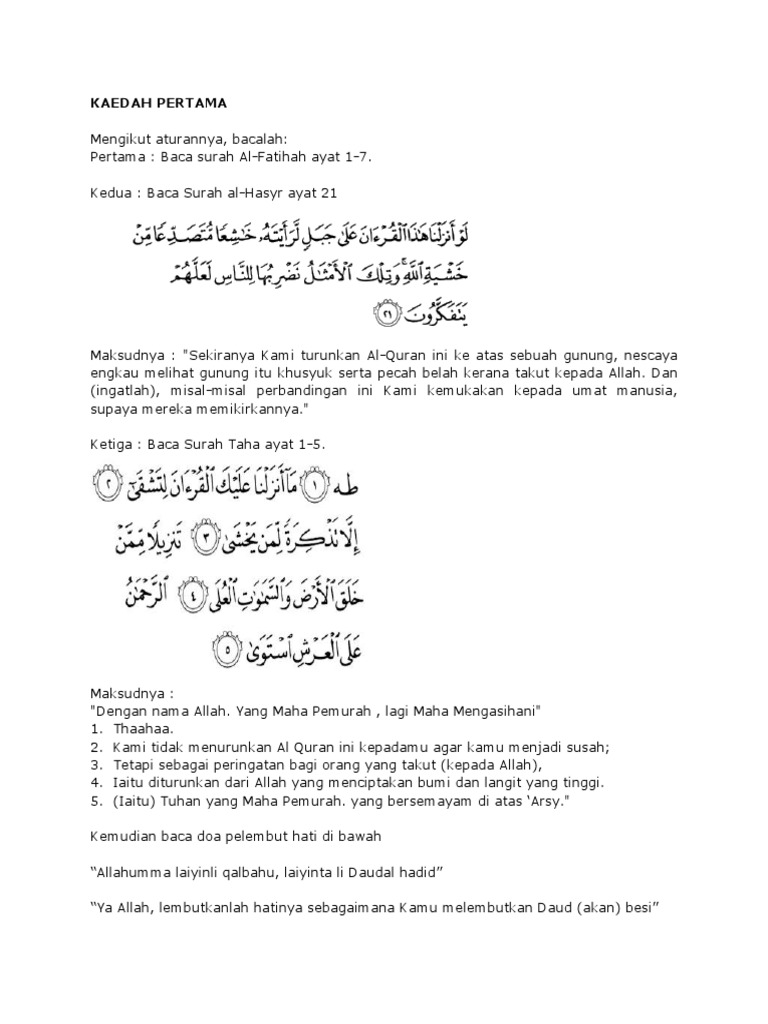 KAEDAH PERTAMA
Mengikut aturannya, bacalah:
Pertama : Baca surah Al-Fatihah ayat 1-7.
Kedua : Baca Surah al-Hasyr ayat 21
لَوْ أَنزَلْنَا هَٰذَا ٱلْقُرْءَانَ عَلَىٰ جَبَلٍ لَّرَأَيْتَهُۥ خَٰشِعًا مُّتَصَدِّعًا مِّنْ
خَشْيَةِ ٱللَّهِ ۚ وَتِلْكَ ٱلْأَمْثَٰلُ نَضْرِبُهَا لِلنَّاسِ لَعَلَّهُمْ
يَتَفَكَّرُونَ ٢١
Maksudnya : "Sekiranya Kami turunkan Al-Quran ini ke atas sebuah gunung, nescaya
engkau melihat gunung itu khusyuk serta pecah belah kerana takut kepada Allah. Dan
(ingatlah), misal-misal perbandingan ini Kami kemukakan kepada umat manusia,
supaya mereka memikirkannya."
Ketiga : Baca Surah Taha ayat 1-5.
طه ١ مَآ أَنزَلْنَا عَلَيْكَ ٱلْقُرْءَانَ لِتَشْقَىٰٓ ٢
إِلَّا تَذْكِرَةً لِّمَن يَخْشَىٰ ٣ تَنزِيلًا مِّمَّنْ
خَلَقَ ٱلْأَرْضَ وَٱلسَّمَٰوَٰتِ ٱلْعُلَى ٤ ٱلرَّحْمَٰنُ
عَلَى ٱلْعَرْشِ ٱسْتَوَىٰ ٥
Maksudnya :
"Dengan nama Allah. Yang Maha Pemurah , lagi Maha Mengasihani"
1. Thaahaa.
2. Kami tidak menurunkan Al Quran ini kepadamu agar kamu menjadi susah;
3. Tetapi sebagai peringatan bagi orang yang takut (kepada Allah),
4. Iaitu diturunkan dari Allah yang menciptakan bumi dan langit yang tinggi.
5. (Iaitu) Tuhan yang Maha Pemurah. yang bersemayam di atas ‘Arsy."
Kemudian baca doa pelembut hati di bawah
“Allahumma laiyinli qalbahu, laiyinta li Daudal hadid”
“Ya Allah, lembutkanlah hatinya sebagaimana Kamu melembutkan Daud (akan) besi”